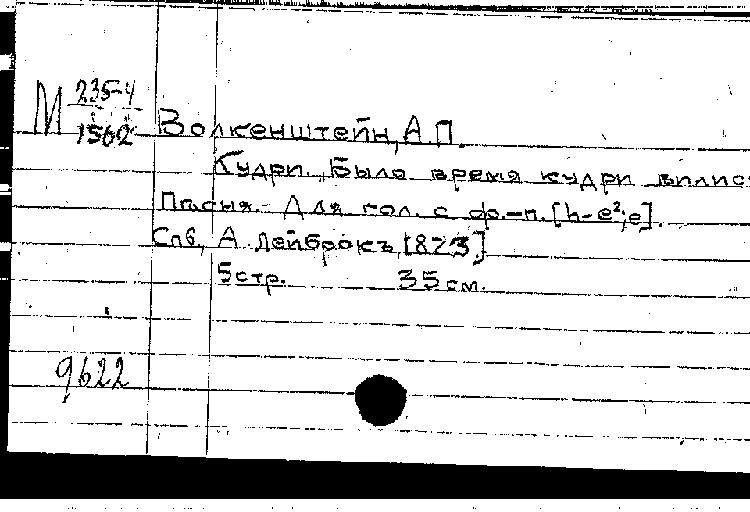 М 235-4
1562
Волкенштейн, А.П.
Кудри. „Было время кудри вились
Пѣсня.- Для гол. с ф.-п. [h-e²; e].
Спб, А. Лейброкъ, [1873]
5 стр. 35 см.
9622